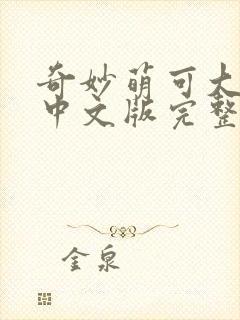 奇妙萌可大
中文版完整
金泉